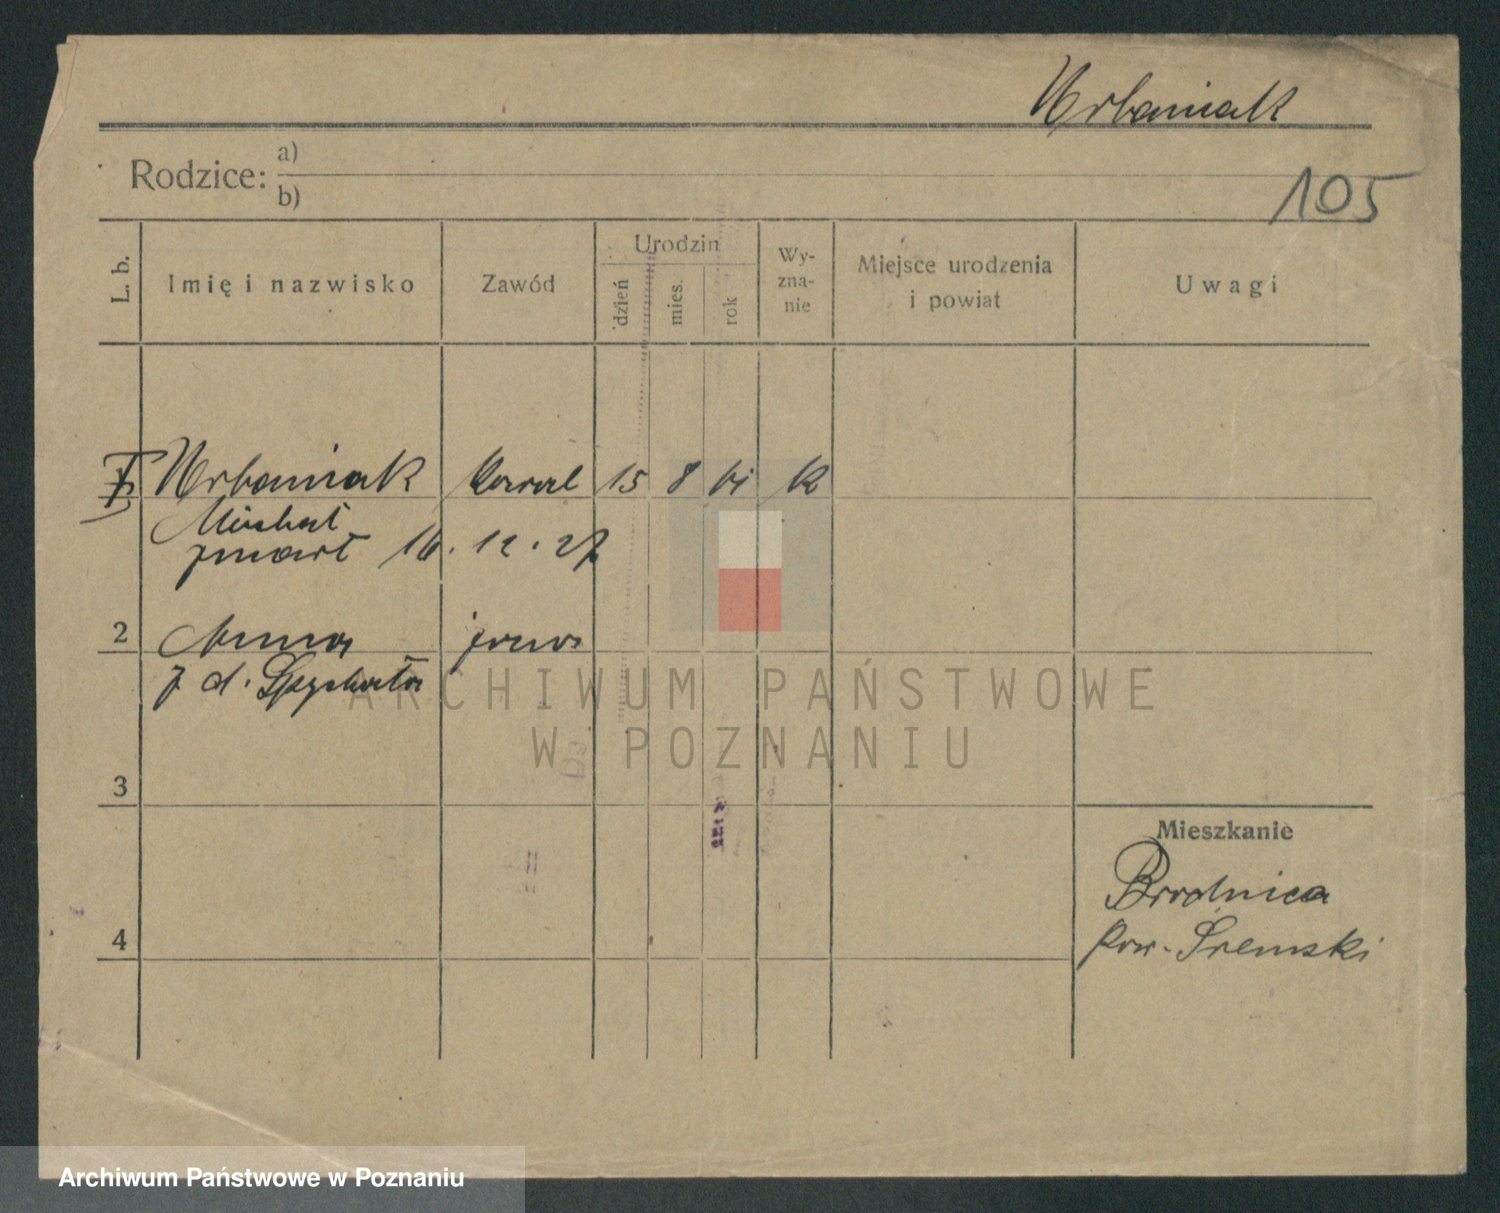 Urbaniak
105
Rodzice: a)
b)
L. b.
Imię i nazwisko
Zawód
Urodzin
dzień
mies.
rok
Wy-
zna-
nie
Miejsce urodzenia
i powiat
Uwagi
Urbaniak Kowal 15 8 K
Michał
zmarł 16. 12. 27
2 Anna żona
z d. Spychała
ARCHIWUM PAŃSTWOWE
W POZNANIU
3
Mieszkanie
Brodnica
pow. Śremski
4
Archiwum Państwowe w Poznaniu